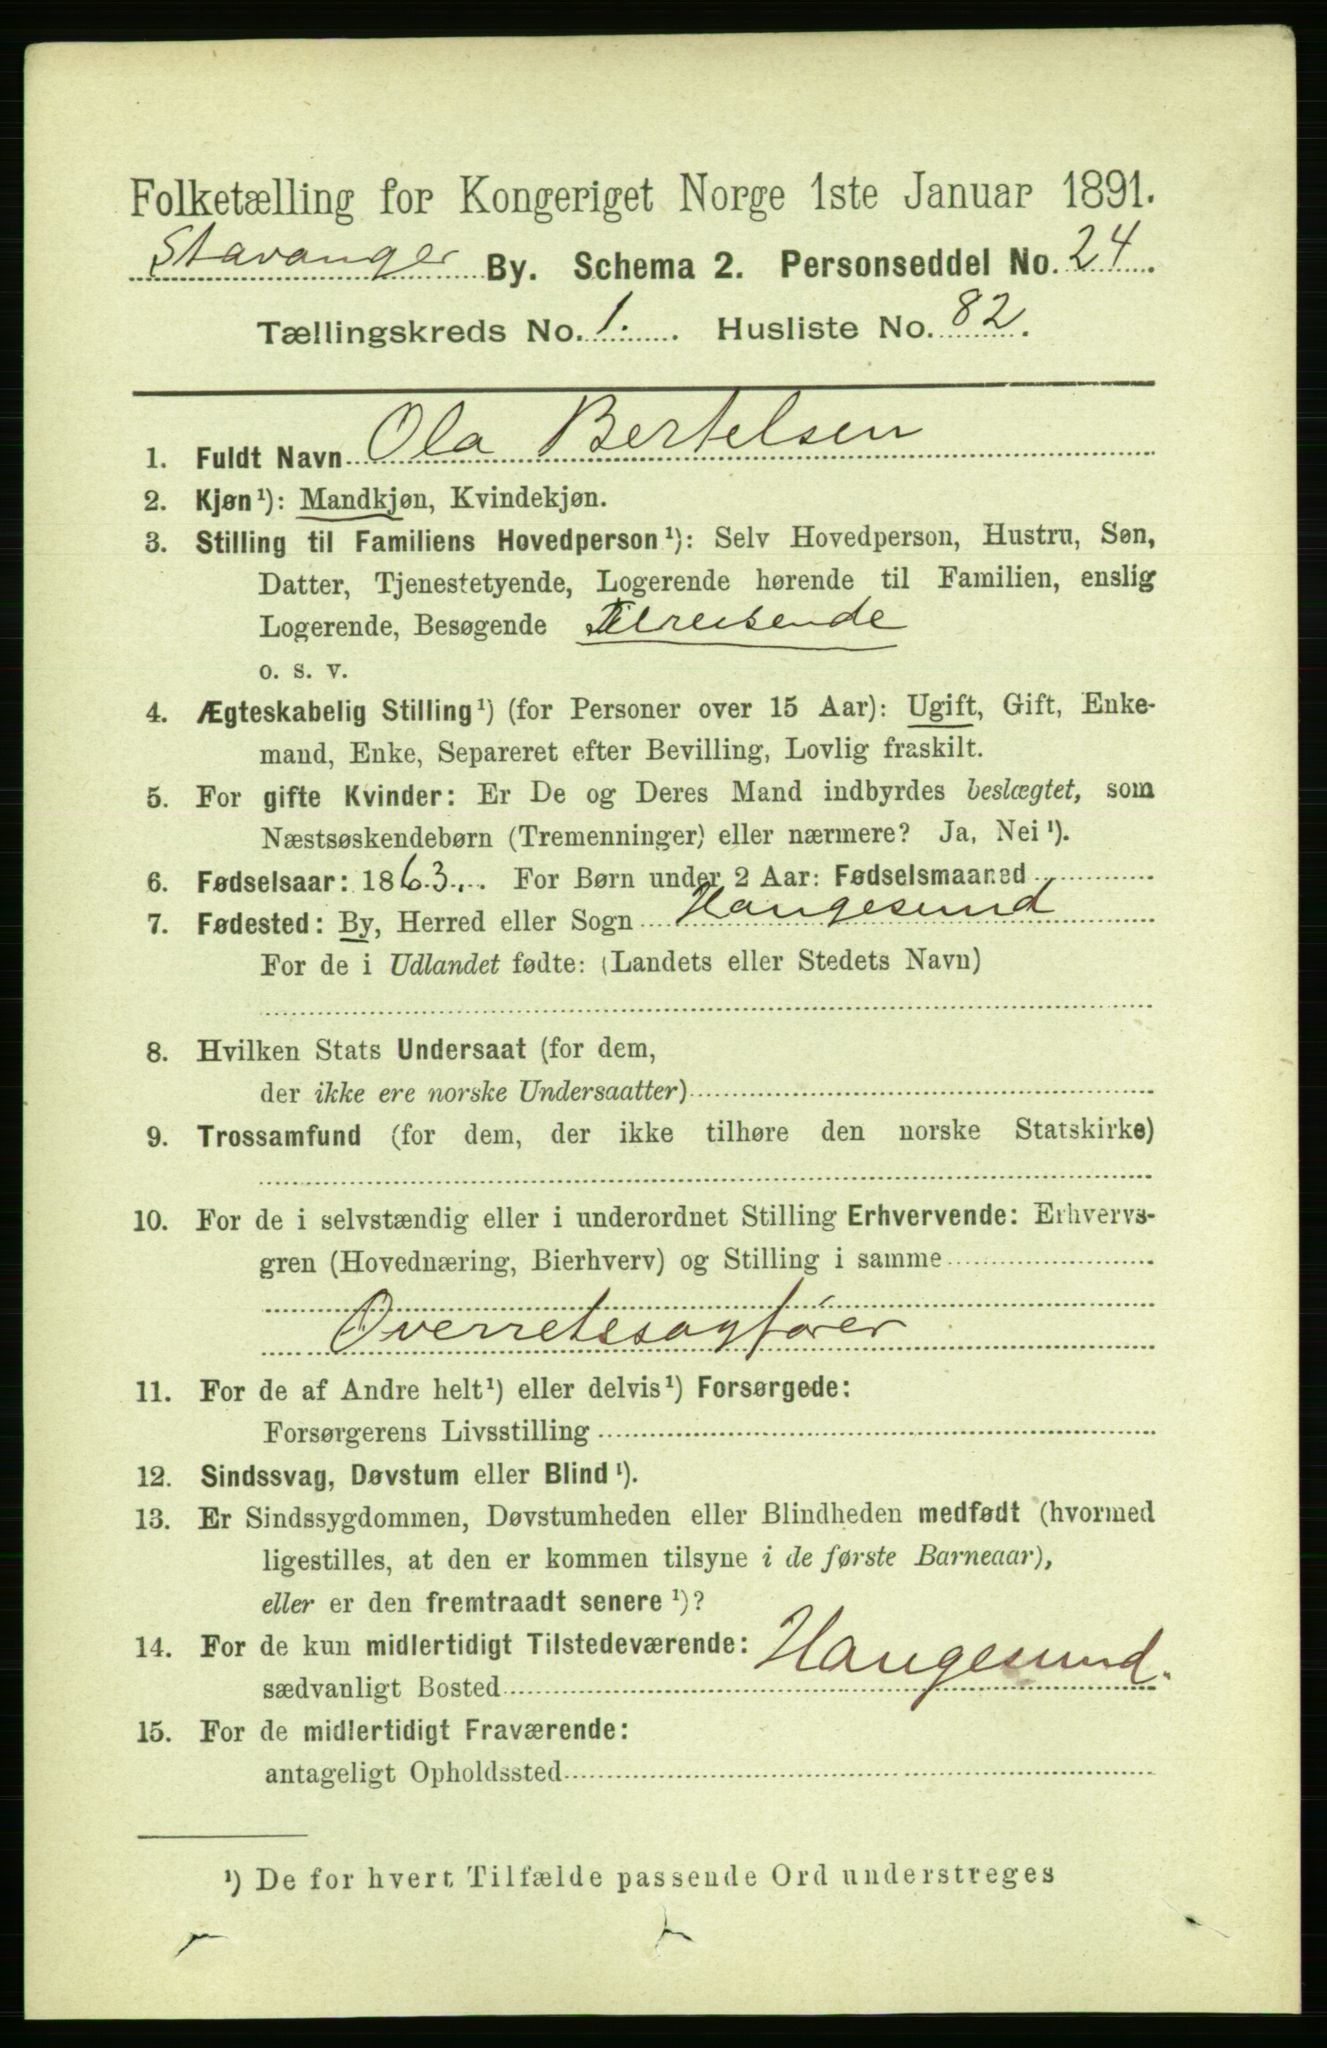 Folketælling for Kongeriget Norge 1ste Januar 1891.
Stavanger By. Schema 2. Personseddel No. 24
Tællingskreds No. 1. Husliste No. 82.
1. Fuldt Navn Ola Bertelsen
2. Kjøn¹): Mandkjøn, Kvindekjøn.
3. Stilling til Familiens Hovedperson¹): Selv Hovedperson, Hustru, Søn,
Datter, Tjenestetyende, Logerende hørende til Familien, enslig
Logerende, Besøgende Tilreisende
o. s. v.
4. Ægteskabelig Stilling¹) (for Personer over 15 Aar): Ugift, Gift, Enke-
mand, Enke, Separeret efter Bevilling, Lovlig fraskilt.
5. For gifte Kvinder: Er De og Deres Mand indbyrdes beslægtet, som
Næstsøskendebørn (Tremenninger) eller nærmere? Ja, Nei¹).
6. Fødselsaar: 1863. For Børn under 2 Aar: Fødselsmaaned
7. Fødested: By, Herred eller Sogn Haugesund
For de i Udlandet fødte: (Landets eller Stedets Navn)
8. Hvilken Stats Undersaat (for dem,
der ikke ere norske Undersaatter)
9. Trossamfund (for dem, der ikke tilhøre den norske Statskirke)
10. For de i selvstændig eller i underordnet Stilling Erhvervende: Erhvervs-
gren (Hovednæring, Bierhverv) og Stilling i samme
Overretssagfører
11. For de af Andre helt¹) eller delvis¹) Forsørgede:
Forsørgerens Livsstilling
12. Sindssvag, Døvstum eller Blind¹).
13. Er Sindssygdommen, Døvstumheden eller Blindheden medfødt (hvormed
ligestilles, at den er kommen tilsyne i de første Barneaar),
eller er den fremtraadt senere¹)?
14. For de kun midlertidigt Tilstedeværende:
sædvanligt Bosted Haugesund.
15. For de midlertidigt Fraværende:
antageligt Opholdssted
¹) De for hvert Tilfælde passende Ord understreges